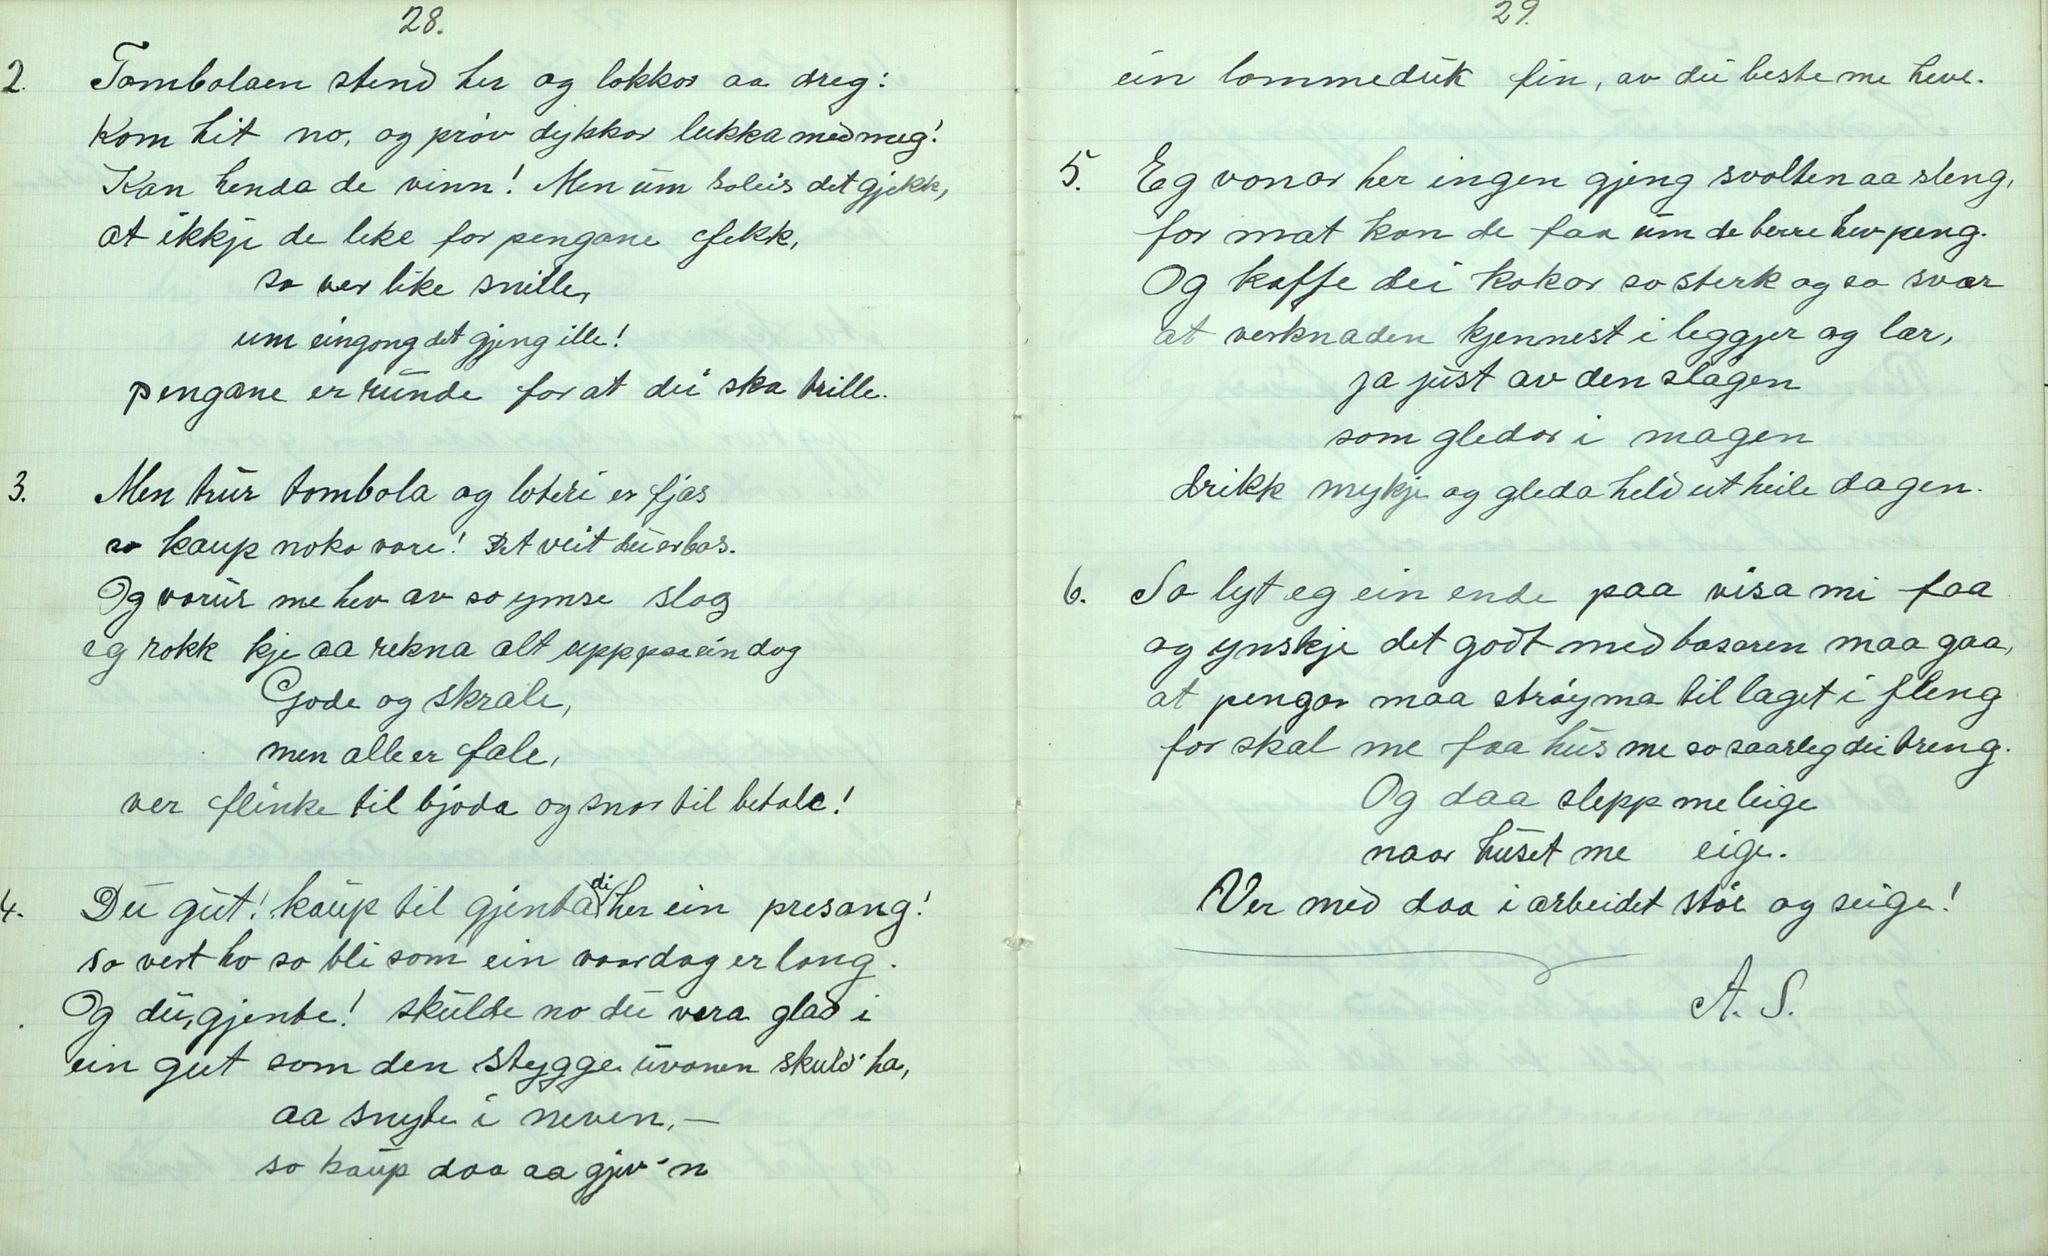 28.
2. Tombolaen stend her og lokkar aa dreg:
Kom hit no, og prøv dykkar lukka med meg!
Kan henda de vinn! Men um soleis det gjekk,
at ikkje de like for pengane fekk,
so ver like snille,
um eingong det gjeng ille!
pengane er runde for at dei ska trille.
3. Men trur tombola og loteri er fjas
so kaup noko vare! Det veit du er bas.
Og varur me hev av so ymse slag
eg rokk kje aa rekna alt upp paa ein dag
Gode og skrale,
men alle er fale,
ver flinke til bjoda og snar til betale!
4. Du gut! kaup til gjenta di her ein presang!
so vert ho so bli som ein vaardag er lang.
Og du, gjente! skulde no du vera glad i
ein gut som den stygge uvanen skuld' ha,
aa snyte i neven, –
so kaup daa aa gjev'n
29.
ein lommeduk fin, av dei beste me heve.
5. Eg vonar her ingen gjeng svolten aa sleng,
for mat kan de faa um de berre hev peng.
Og kaffe dei kokar so sterk og so svær
at verknaden kjennest i leggjer og lær,
ja just av den slagen
som gledar i magen
drikk mykje og gleda held ut heile dagen.
6. So lyt eg ein ende paa visa mi faa
og ynskje det godt med basaren maa gaa,
at pengar maa strøyma til laget i fleng
for skal me faa hus me so saarleg dei treng.
Og daa slepp me leige
naar huset me eige.
Ver med daa i arbeidet støe og seige!
A. S.